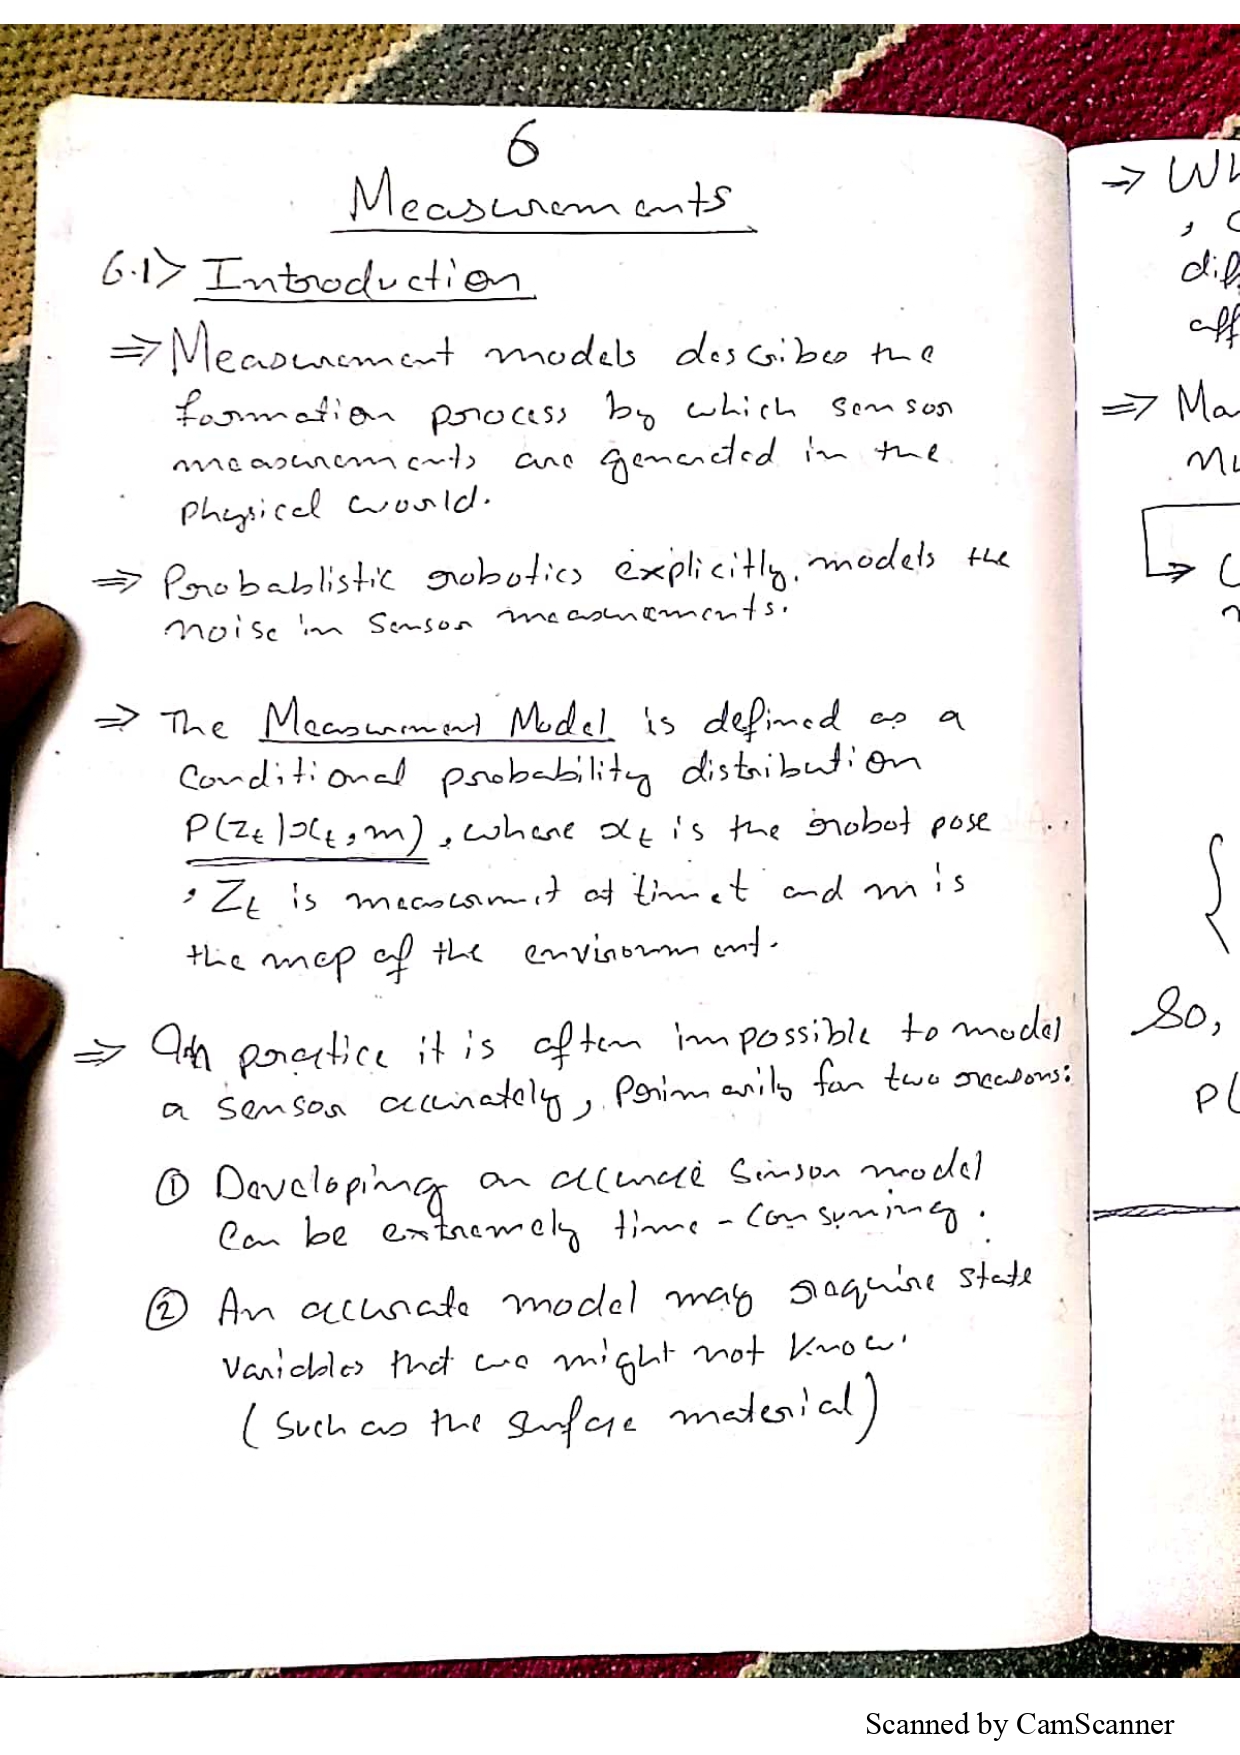 6
Measurements
6.1> Introduction
⇒ Measurement models describes the
formation process by which sensor
measurements are generated in the
physical world.
⇒ Probablistic robotics explicitly models the
noise in sensor measurements.
⇒ The Measurment Model is defined as a
conditional probability distribution
P(zt|xt, m), where xt is the robot pose
, Zt is measurment at time t and m is
the map of the environment.
⇒ In practice it is often impossible to model
a sensor accurately, primarily for two reasons:
① Developing an accurate sensor model
can be extremely time-consuming.
② An accurate model may require state
variables that we might not know.
(such as the surface material)
⇒ Wh
, c
dif
aff
⇒ Ma
So,
P(
Scanned by CamScanner